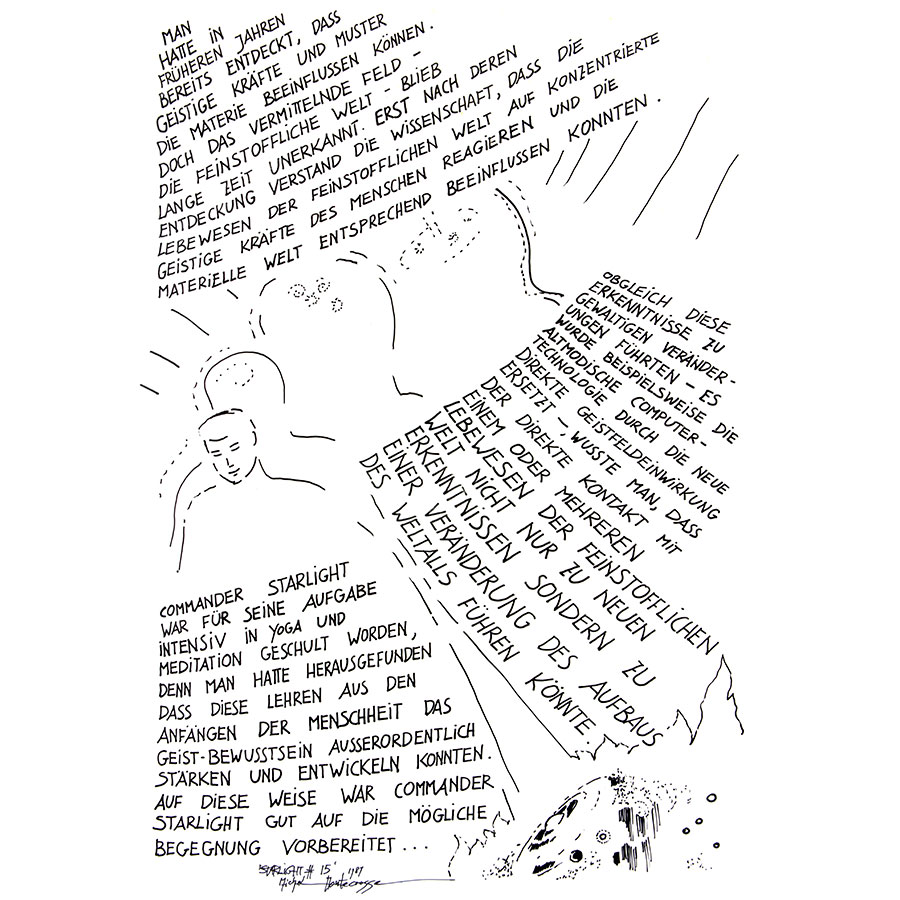 MAN
HATTE IN
FRÜHEREN JAHREN
BEREITS ENTDECKT, DASS
GEISTIGE KRÄFTE UND MUSTER
DIE MATERIE BEEINFLUSSEN KÖNNEN.
DOCH DAS VERMITTELNDE FELD -
DIE FEINSTOFFLICHE WELT - BLIEB
LANGE ZEIT UNERKANNT. ERST NACH DEREN
ENTDECKUNG VERSTAND DIE WISSENSCHAFT, DASS DIE
LEBEWESEN DER FEINSTOFFLICHEN WELT AUF KONZENTRIERTE
GEISTIGE KRÄFTE DES MENSCHEN REAGIEREN UND DIE
MATERIELLE WELT ENTSPRECHEND BEEINFLUSSEN KONNTEN.
OBGLEICH DIESE
ERKENNTNISSE ZU
GEWALTIGEN VERÄNDER-
UNGEN FÜHRTEN - ES
WURDE BEISPIELSWEISE DIE
ALTMODISCHE COMPUTER-
TECHNOLOGIE DURCH DIE NEUE
DIREKTE GEISTFELDEINWIRKUNG
ERSETZT - WUSSTE MAN, DASS
DER DIREKTE KONTAKT MIT
EINEM ODER MEHREREN
LEBEWESEN DER FEINSTOFFLICHEN
WELT NICHT NUR ZU NEUEN
ERKENNTNISSEN SONDERN ZU
EINER VERÄNDERUNG DES AUFBAUS
DES WELTALLS FÜHREN KÖNNTE
COMMANDER STARLIGHT
WAR FÜR SEINE AUFGABE
INTENSIV IN YOGA UND
MEDITATION GESCHULT WORDEN,
DENN MAN HATTE HERAUSGEFUNDEN
DASS DIESE LEHREN AUS DEN
ANFÄNGEN DER MENSCHHEIT DAS
GEIST-BEWUSSTSEIN AUSSERORDENTLICH
STÄRKEN UND ENTWICKELN KONNTEN.
AUF DIESE WEISE WAR COMMANDER
STARLIGHT GUT AUF DIE MÖGLICHE
BEGEGNUNG VORBEREITET...
'STARLIGHT # 15'
Michel Montecrossa